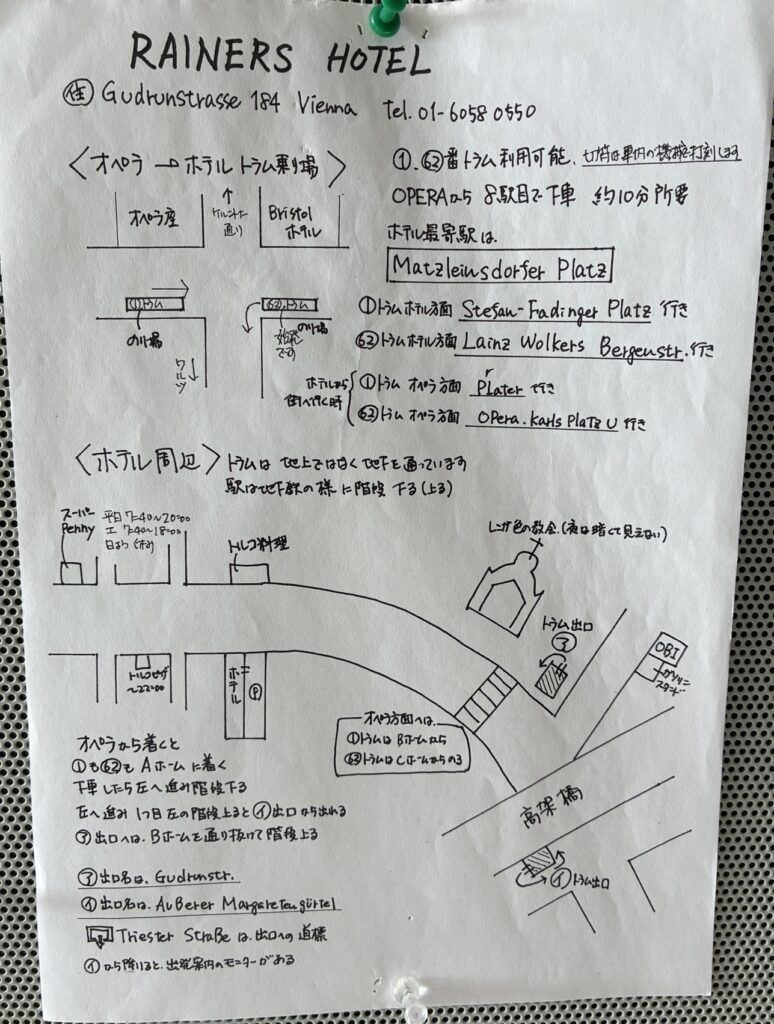 RAINERS HOTEL
㊟ Gudrunstrasse 184 Vienna tel. 01-6058 0550
<オペラ → ホテル トラム乗り場>
オペラ座
↑
通り
Bristol
ホテル
①トラム
のり場
62トラム
のり場
始発
です
ワルツ
↓
①、62番トラム利用可能、切符は車内の機械で打刻します
OPERAから 8駅目で下車 約10分所要
ホテル最寄駅は
Matzleinsdorfer Platz
①トラムホテル方面 Stefan-Fadinger Platz 行き
62トラムホテル方面 Lainz Wolkers Bergenstr. 行き
ホテルから
街へ行く時
①トラム オペラ方面 Prater 行き
62トラム オペラ方面 Opera. Karls Platz U 行き
<ホテル周辺> トラムは 地上ではなく地下を通っています
駅は地下鉄の様に階段 下る(上る)
スーパー
Penny
平日 7:40~20:00
土 7:40~18:00
日よう (休み)
トルコ料理
レンガ色の教会.(夜は暗くて見えない)
トラム出口
ア
OBI
ガソリン
スタンド
トルコピザ
~22:00
ホテル
P
オペラ方面へは、
①トラムは Bホームから
62トラムは Cホームからのる
高架橋
イ トラム出口
オペラから着くと
①も62も Aホームに着く
下車したら左へ進み階段下る
左へ進み 1つ目左の階段上ると イ出口から出れる
ア出口へは、Bホームを通り抜けて階段上る
ア出口名は、Gudrunstr.
イ出口名は、Außerer Margaretengürtel
Triester Straße は、出口への道標
イから降りると、出発案内のモニターがある